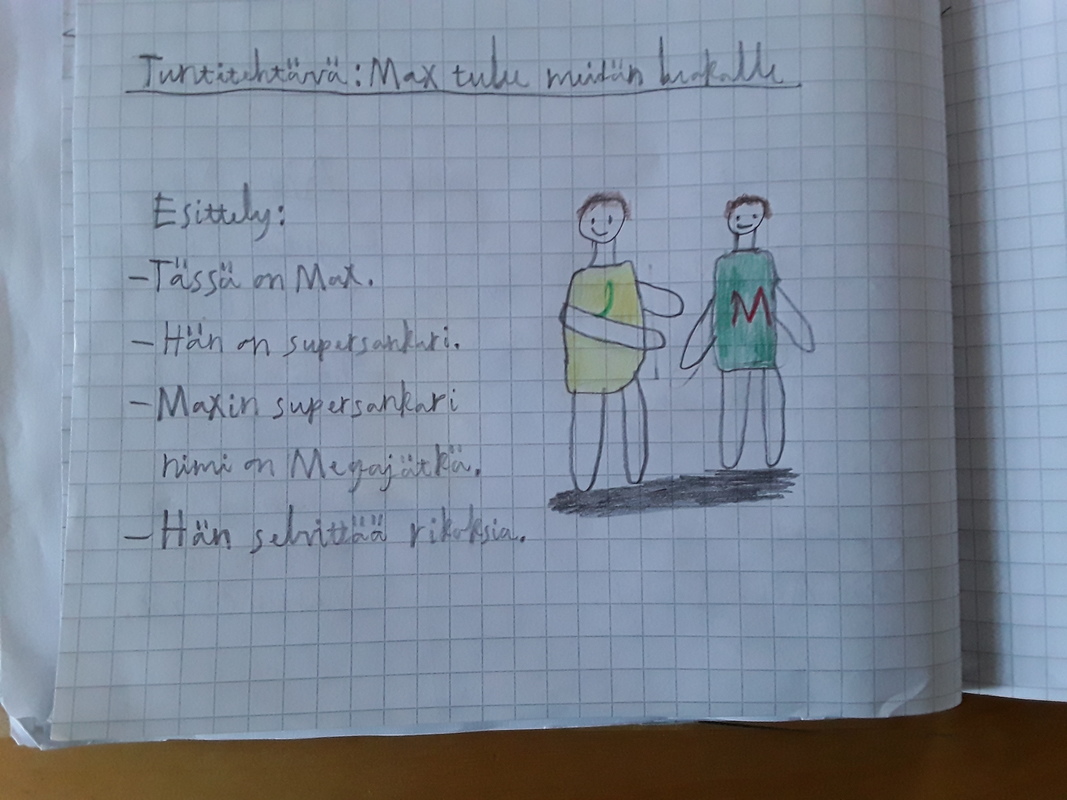 Tuntitehtävä: Max tulee meidän luokalle
Esittely:
-Tässä on Max.
-Hän on supersankari.
-Maxin supersankari
nimi on Megajätkä.
-Hän selvittää rikoksia.
J
M